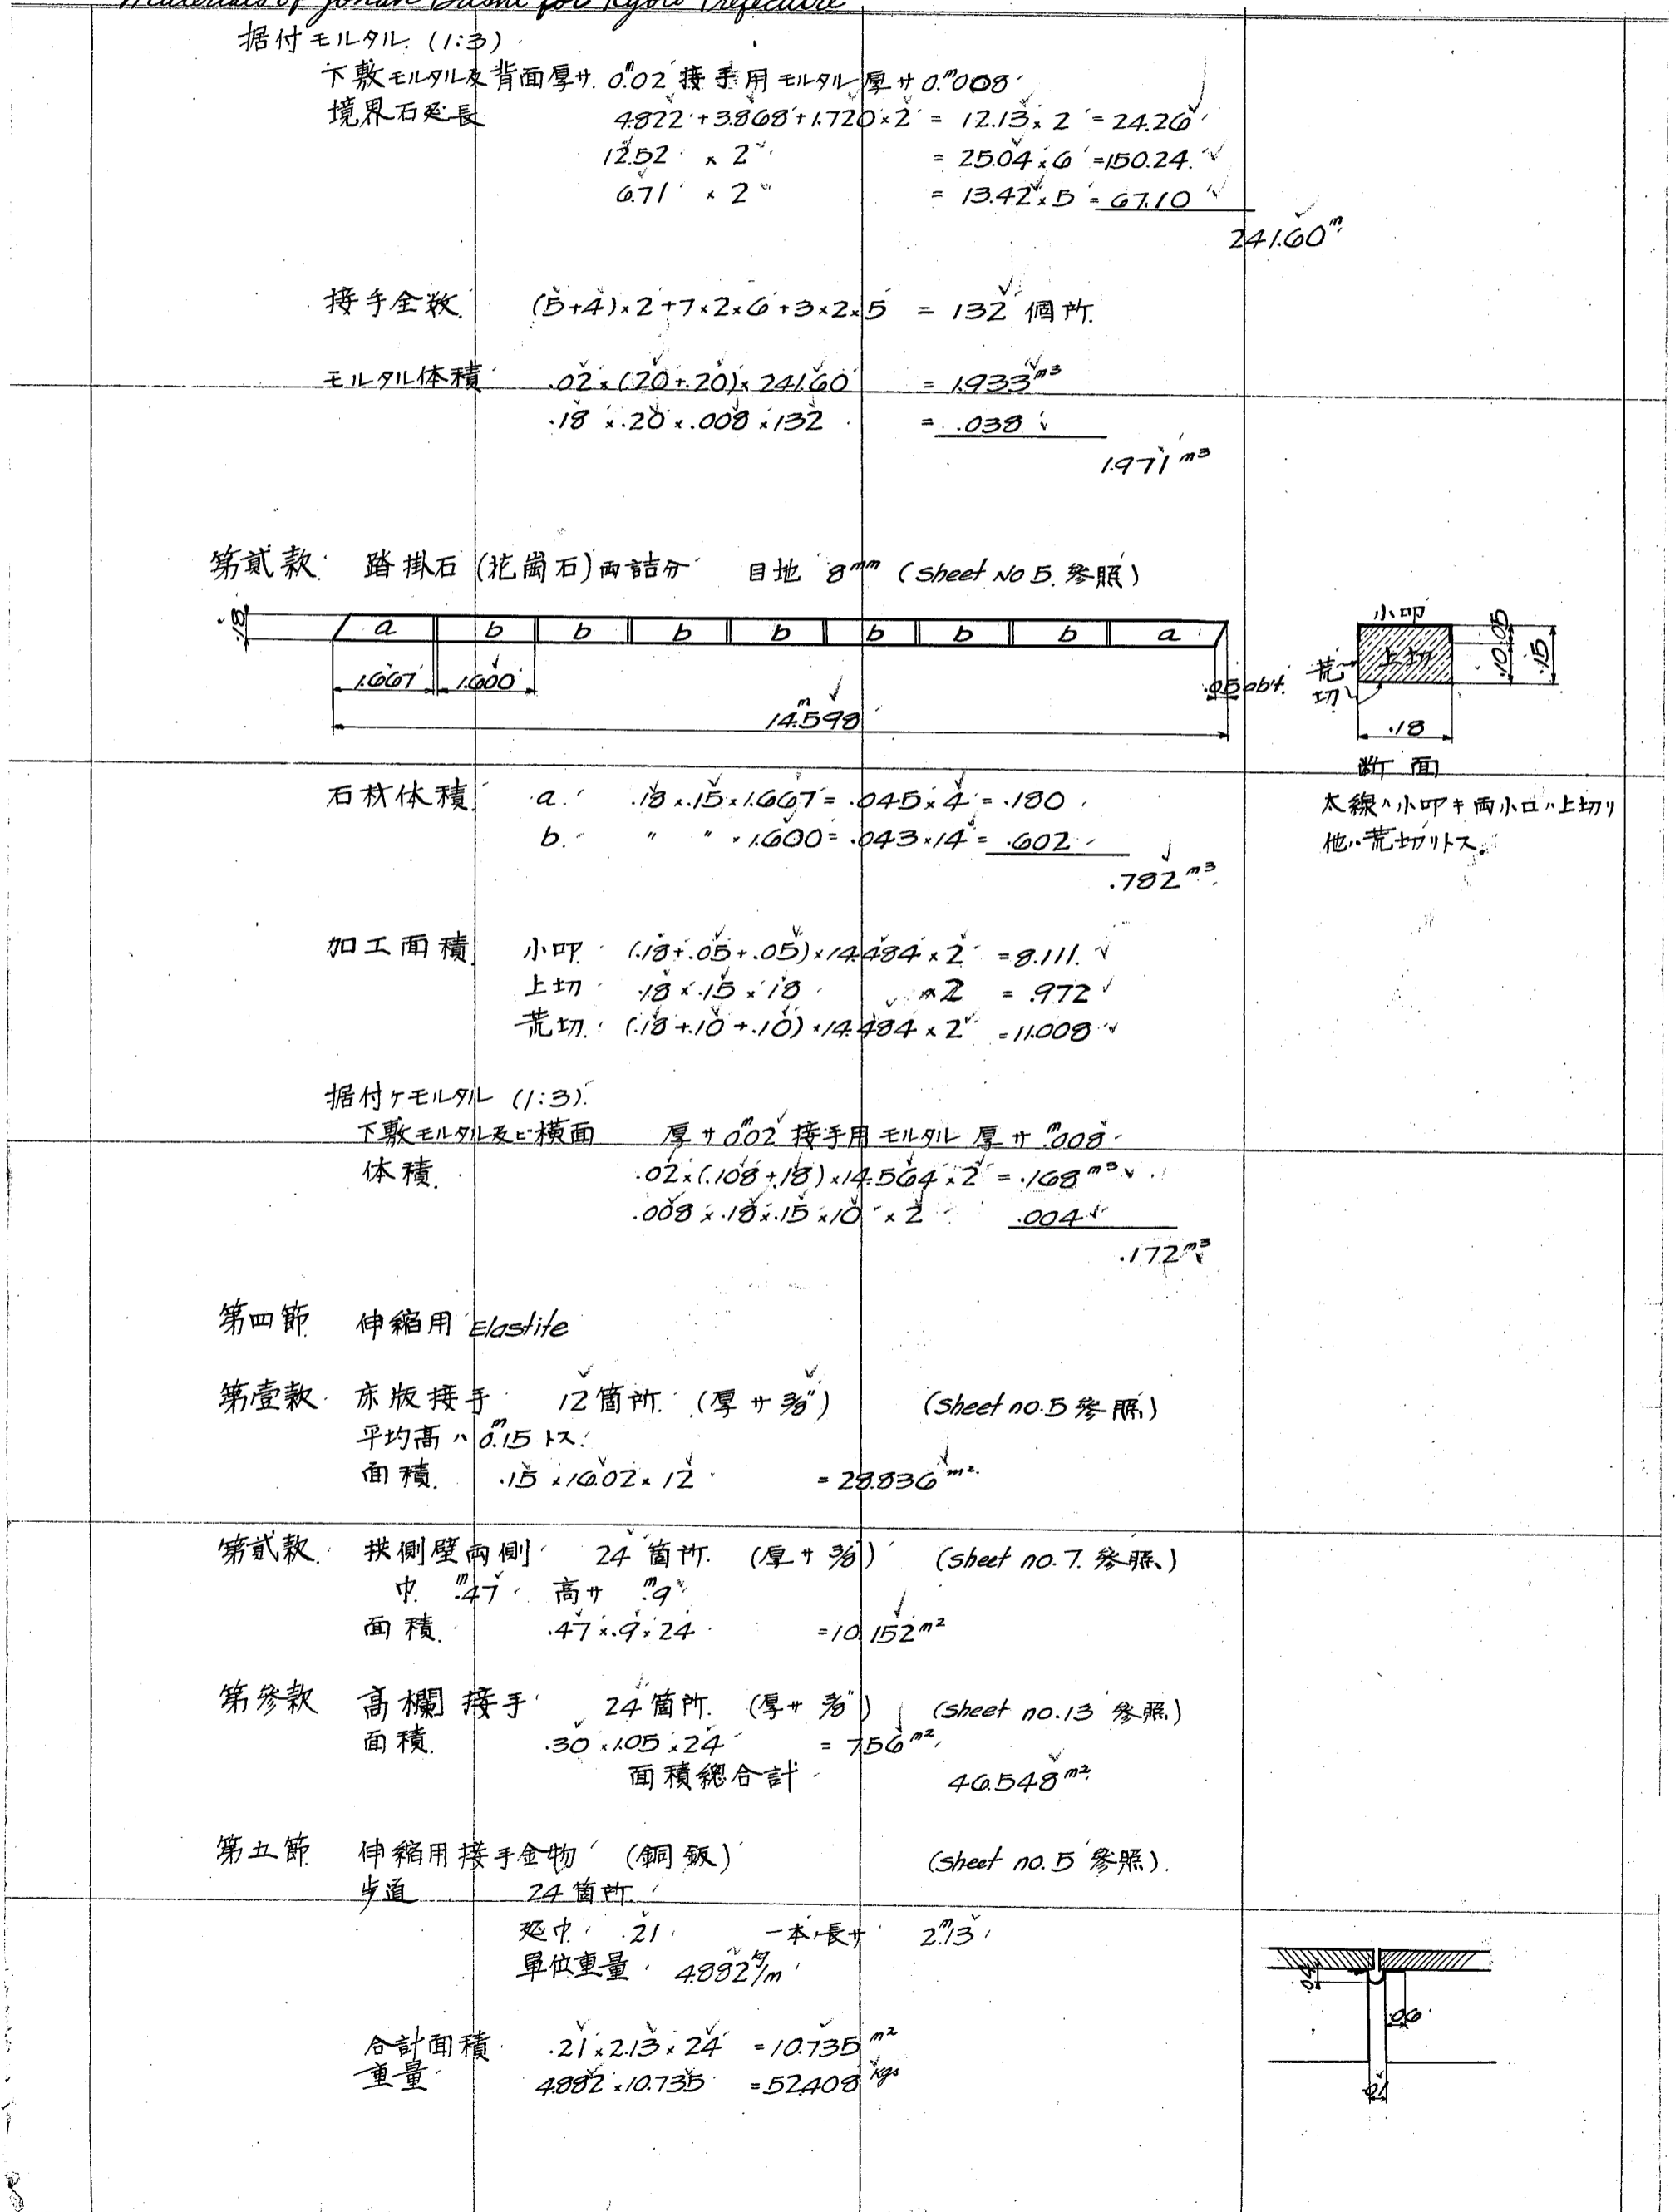 Materials of Jonan Bashi for Kyoto Prefecture
据付モルタル (1:3)
下敷モルタル及背面厚サ 0.ᵐ02 接手用モルタル厚サ 0.ᵐ008
境界石延長 4.822 + 3.868 + 1.720 × 2 = 12.13 × 2 = 24.26
12.52 × 2 = 25.04 × 6 = 150.24
6.71 × 2 = 13.42 × 5 = 67.10
241.60ᵐ
接手全数 (5+4)×2+7×2×6+3×2×5 = 132 個所
モルタル体積 .02×(.20+.20)×241.60 = 1.933 m³
.18 × .20 × .008 × 132 = .038
1.971 m³
第貳款 踏掛石 (花崗石) 両詰分 目地 8mm (Sheet No 5. 參照)
.18 a b b b b b b b a
1.667 1.600 .05 abt.
14.598 m
小叩
上切
荒切
.05
.10
.15
.18
断面
太線ハ小叩キ両小口ハ上切リ
他ハ荒切リトス
石材体積 a. .18×.15×1.667 = .045×4 = .180
b. " " ×1.600 = .043×14 = .602
.782 m³
加工面積 小叩 (.18+.05+.05)×14.484×2 = 8.111
上切 .18×.15×18 ×2 = .972
荒切 (.18+.10+.10)×14.484×2 = 11.008
据付ケモルタル (1:3)
下敷モルタル及ビ横面 厚サ 0.ᵐ02 接手用モルタル 厚サ .ᵐ008
体積 .02×(.108+.18)×14.564×2 = .168 m³
.008×.18×.15×10×2 .004
.172 m³
第四節 伸縮用 Elastite
第壹款 床版接手 12箇所 (厚サ 3/8") (Sheet no. 5 參照)
平均高ハ 0.ᵐ15 トス
面積 .15×16.02×12 = 28.836 m²
第貳款 拱側壁両側 24箇所 (厚サ 3/8") (Sheet no. 7. 參照)
巾 .ᵐ47 高サ .ᵐ9
面積 .47×.9×24 = 10.152 m²
第參款 高欄接手 24箇所 (厚サ 3/8") (Sheet no. 13 參照)
面積 .30×1.05×24 = 7.56 m²
面積總合計 46.548 m²
第五節 伸縮用接手金物 (銅鈑) (Sheet no. 5 參照)
歩道 24箇所
延巾 .21 一本ノ長サ 2.ᵐ13
單位重量 4.882 kg/m
合計面積 .21×2.13×24 = 10.735 m²
重量 4.882×10.735 = 52.408 kgs
.04
.06